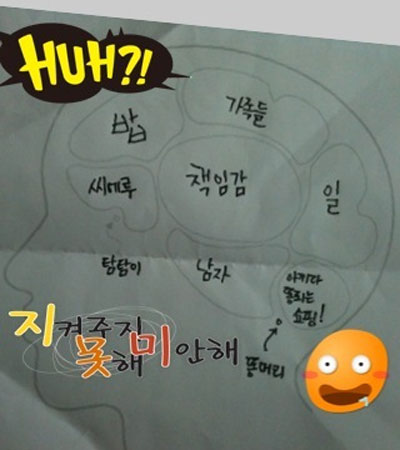 HUH?!
밥
가족들
씨메루
책임감
일
탐탐이
남자
아끼다
똥되는
쇼핑!
똥머리
지켜주지
못해 미안해